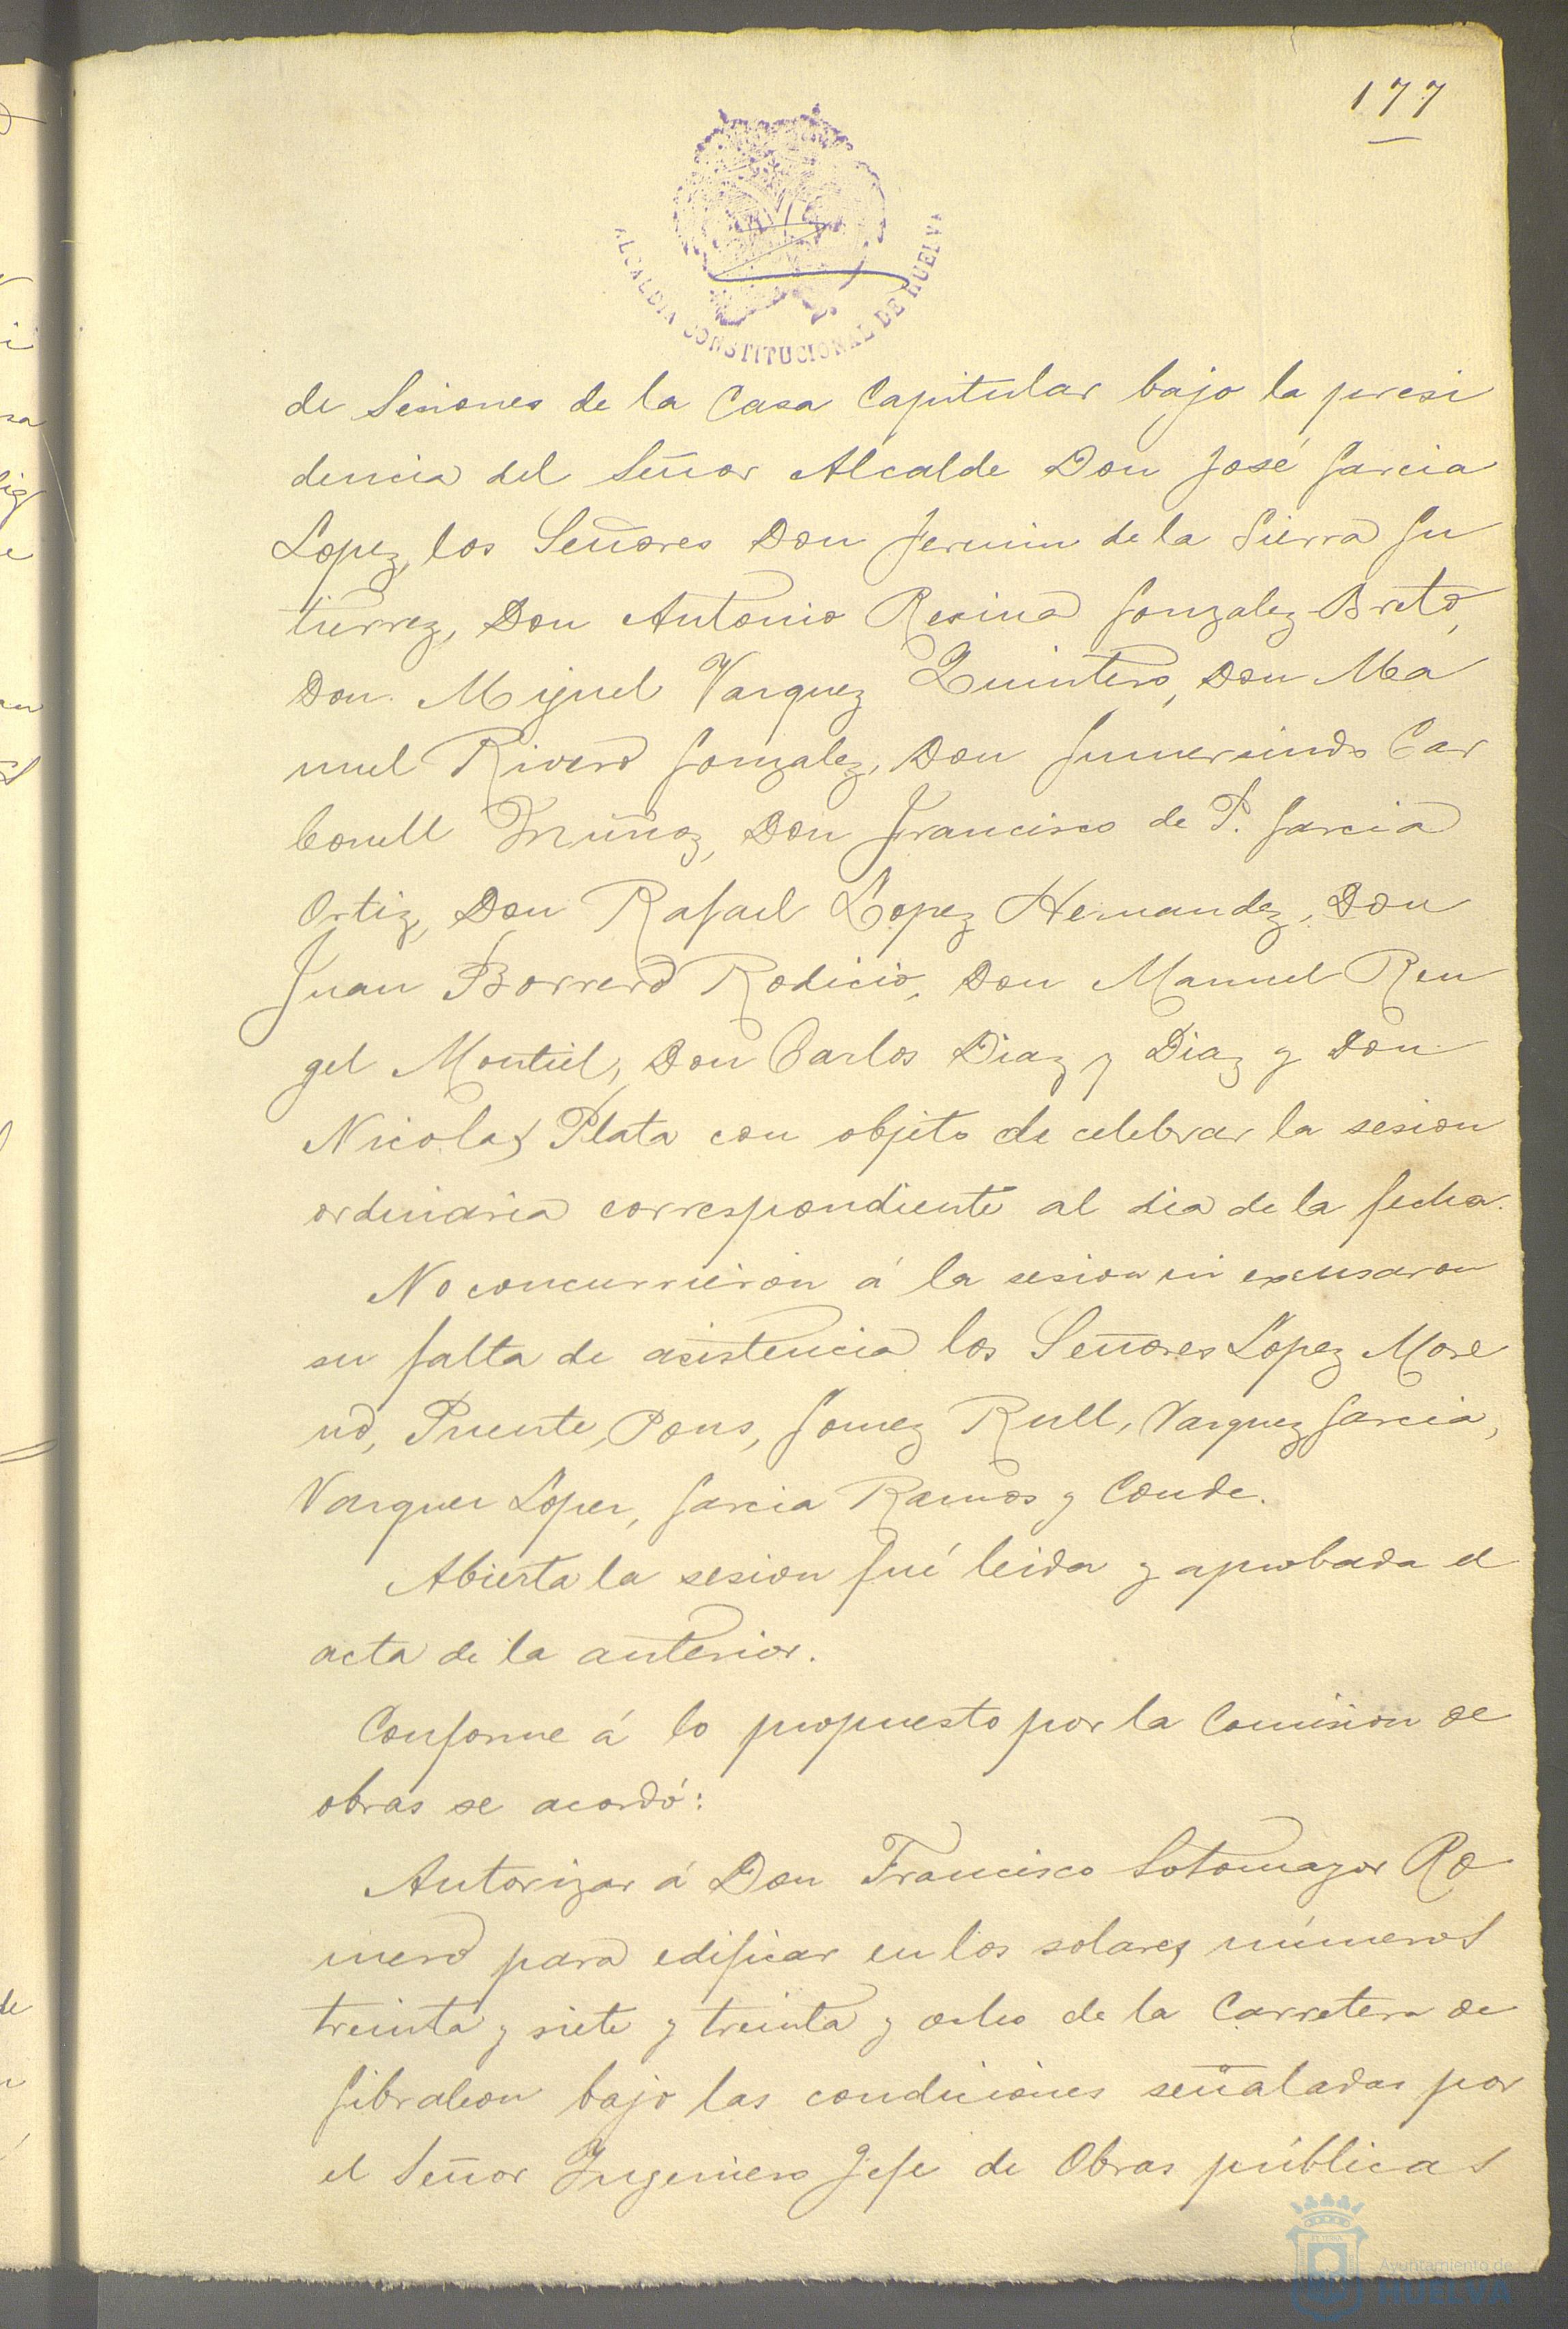 177
ALCALDIA CONSTITUCIONAL DE HUELVA
de Sesiones de la Casa Capitular bajo la presi
dencia del Señor Alcalde Don José Garcia
Lopez, los Señores Don Fermin de la Sierra Gu
tierrez, Don Antonio Resina Gonzalez Breto,
Don Miguel Vazquez Quintero, Don Ma
nuel Rivero Gonzalez, Don Gumersindo Car
bonell Muñoz, Don Francisco de P. Garcia
Ortiz, Don Rafael Lopez Hernandez, Don
Juan Borrero Rodicio, Don Manuel Ren
gel Montiel, Don Carlos Diaz y Diaz y Don
Nicolas Plata con objeto de celebrar la sesion
ordinaria correspondiente al dia de la fecha.
No concurrieron á la sesion ni excusaron
su falta de asistencia los Señores Lopez More
no, Puente, Pons, Gomez Rull, Vazquez Garcia,
Vazquez Lopez, Garcia Ramos y Conde.
Abierta la sesion fué leida y aprobada el
acta de la anterior.
Conforme á lo propuesto por la Comision de
obras se acordó:
Autorizar á Don Francisco Sotomayor Ro
mero para edificar en los solares números
treinta y siete y treinta y ocho de la Carretera de
Gibraleon bajo las condiciones señaladas por
el Señor Ingeniero Jefe de Obras públicas
Ayuntamiento de
HUELVA